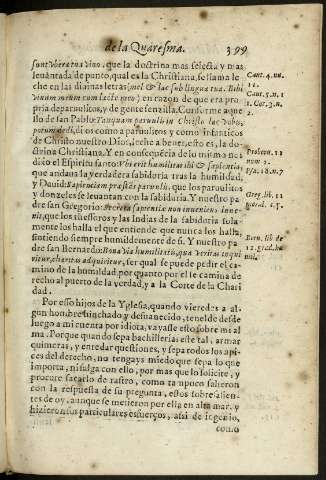 de la Quaresma. 399
sunt vbera tua vino, que la doctrina mas selecta y mas
leuantada de punto, qual es la Christiana, se llama le
che en las diuinas letras; mel & lac sub lingua tua. Bibi
vinum meum cum lacte meo) en razon de que era pro
pria de paruulitos, y de gente senzilla. Conforme a aque
llo de san Pablo: Tanquam paruulis in Christo lac vobis
potum dedi, di os como a paruulitos y como infanticos
de Christo nuestro Dios, leche a beuer, esto es, la do-
ctrina Christiana. Y en consequẽcia de lo mismo nos
dixo el Espiritu santo: Vbi erit humilitas ibi & sapientia,
que andaua la verdadera sabiduria tras la humildad,
y Dauid: Sapientiam præstãs paruulis, que los paruulitos
y donzeles se leuantan con la sabiduria. Y nuestro pa
dre san Gregorio: Arcana sapientiæ non inueniens inue-
nit, que los thesoros y las Indias de la sabiduria sola
mente los halla el que entiende que nunca los halla,
sintiendo siempre humildemente de si. Y nuestro pa
dre san Bernardo: Bona via humilitatis, qua veritas inqui
ritur, charitas adquiritur, ser qual se puede pedir el ca-
mino de la humildad, por quanto por el le camina de
recho al puerto de la verdad, y a la Corte de la Chari
dad.
Por esso hijos de la Yglesia, quando vieredes a al-
gun hombre hinchado y desuanecido, tenelde desde
luego a mi cuenta por idiota, vaya se esto sobre mi al
ma. Porque quando sepa bachillerias este tal, armar
quimeras, y enredar questiones, y sepa todos los api-
ces del derecho, no tengays miedo que sepa lo que
importa, ni salga con ello, por mas que lo solicite, y
procure sacarlo de rastro, como tampoco salieron
con la respuesta de su pregunta, estos sobresalien-
tes de oy, aunque se metieron por ella en alta mar, y
hizieron sus particulares esfuerços, assi de ingenio,
como
Cant. 4. nu.
12.
Cant. 5. n. 1
1. Cor. 3. n.
2.
Prouerb. 11
num. 2.
Psa. 18. n. 7
Greg. lib. 11
moral. c. 7.
Bern. lib. de
12. grad. hu
mil.